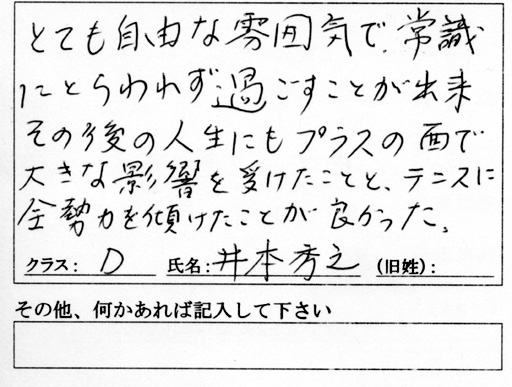 とても自由な雰囲気で、常識
にとらわれず過ごすことが出来
その後の人生にもプラスの面で
大きな影響を受けたことと、テニスに
全勢力を傾けたことが良かった。
クラス: D 氏名: 井本秀之 (旧姓):
その他、何かあれば記入して下さい